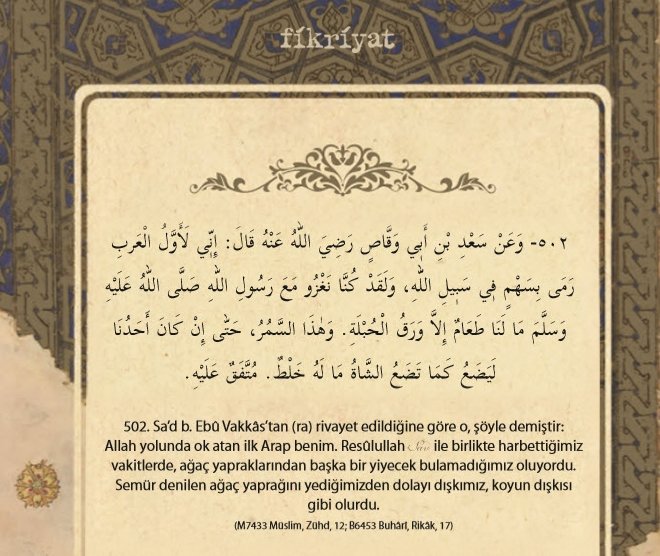 fikriyat
٥٠٢- وَعَنْ سَعْدِ بْنِ أَبِي وَقَّاصٍ رَضِيَ اللهُ عَنْهُ قَالَ: إِنِّي لَأَوَّلُ الْعَربِ
رَمَى بِسَهْمٍ فِي سَبِيلِ اللهِ، وَلَقَدْ كُنَّا نَغْزُو مَعَ رَسُولِ اللهِ صَلَّى اللهُ عَلَيْهِ
وَسَلَّمَ مَا لَنَا طَعَامٌ إِلاَّ وَرَقُ الْحُبْلَةِ. وَهٰذَا السَّمُرُ، حَتّٰى إِنْ كَانَ أَحَدُنَا
لَيَضَعُ كَمَا تَضَعُ الشَّاةُ مَا لَهُ خَلْطٌ. مُتَّفَقٌ عَلَيْهِ.
502. Sa'd b. Ebû Vakkâs'tan (ra) rivayet edildiğine göre o, şöyle demiştir:
Allah yolunda ok atan ilk Arap benim. Resûlullah ile birlikte harbettiğimiz
vakitlerde, ağaç yapraklarından başka bir yiyecek bulamadığımız oluyordu.
Semür denilen ağaç yaprağını yediğimizden dolayı dışkımız, koyun dışkısı
gibi olurdu.
(M7433 Müslim, Zühd, 12; B6453 Buhârî, Rikâk, 17)